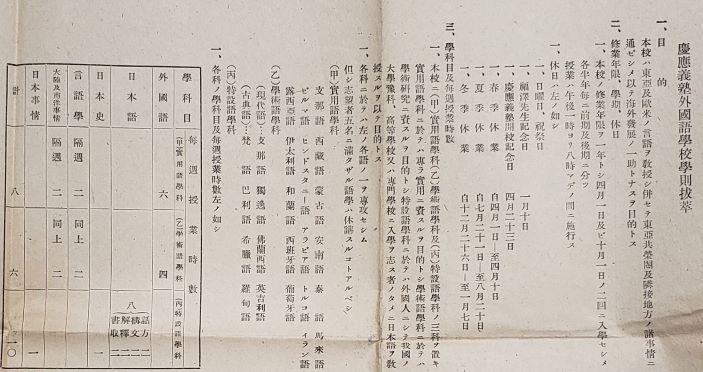 慶應義塾外國語學校學則拔萃
一、目的
本校ハ東亞及歐米ノ言語ヲ敎授シ併セテ東亞共榮圈及隣接地方ノ諸事情ニ
通ゼシメ以テ海外發展ノ一助トナスヲ目的トス
二、修業年限、學期、休日
一、本校ノ修業年限ヲ一年トシ四月一日及ビ十月一日ノ二回ニ入學セシメ
各半年每ニ前期及後期ニ分ツ
授業ハ午後一時ヨリ八時マデノ間ニ施行ス
一、休日ハ左ノ如シ
一、日曜日、祝祭日
福澤先生記念日 一月十日
慶應義塾開校記念日 四月二十三日
一、春季休業 自四月一日至四月十日
一、夏季休業 自七月二十一日至八月二十日
一、冬季休業 自十二月二十六日至一月七日
三、學科目及每週授業時數
一、本校ニ(甲)實用語學科(乙)學術語學科及(丙)特設語學科ノ三科ヲ置キ
實用語學科ニ於テハ專ラ實用ニ資スルヲ目的トシ學術語學科ニ於テハ
學術硏究ニ資スルヲ目的トシ特設語學科ニ於テハ外國人ニシテ我國ノ
大學豫科、高等學校又ハ專門學校ニ入學ヲ志ス者ノタメニ日本語ヲ敎
授スルヲ以テ目的トス
一、各科ニ於テハ左ノ各語ノ一ヲ專攻セシム
但シ志望者五名ニ滿タザル語學ハ休講スルコトアルベシ
(甲)實用語學科
支那語 西藏語 蒙古語 安南語 泰語 馬來語
ビルマ語 ヒンドスタニー語 アラビア語 トルコ語 イラン語
露西亞語 伊太利語 和蘭語 西班牙語 葡萄牙語
(乙)學術語學科
(現代語)…支那語 獨逸語 佛蘭西語 英吉利語
(古典語)…梵語 巴利語 希臘語 羅甸語
(丙)特設語學科
一、各科ノ學科目及每週授業時數左ノ如シ
學科目 每週授業時數
(甲)實用語學科 (乙)學術語學科 (丙)特設語學科
外國語 六 四
日本語 八 話方二 構文二 解釋二 書取二
日本史 一
言語學 隔週二 同上二
大陸及南洋事情 隔週二 同上二
日本事情 一
計 八 六 一〇